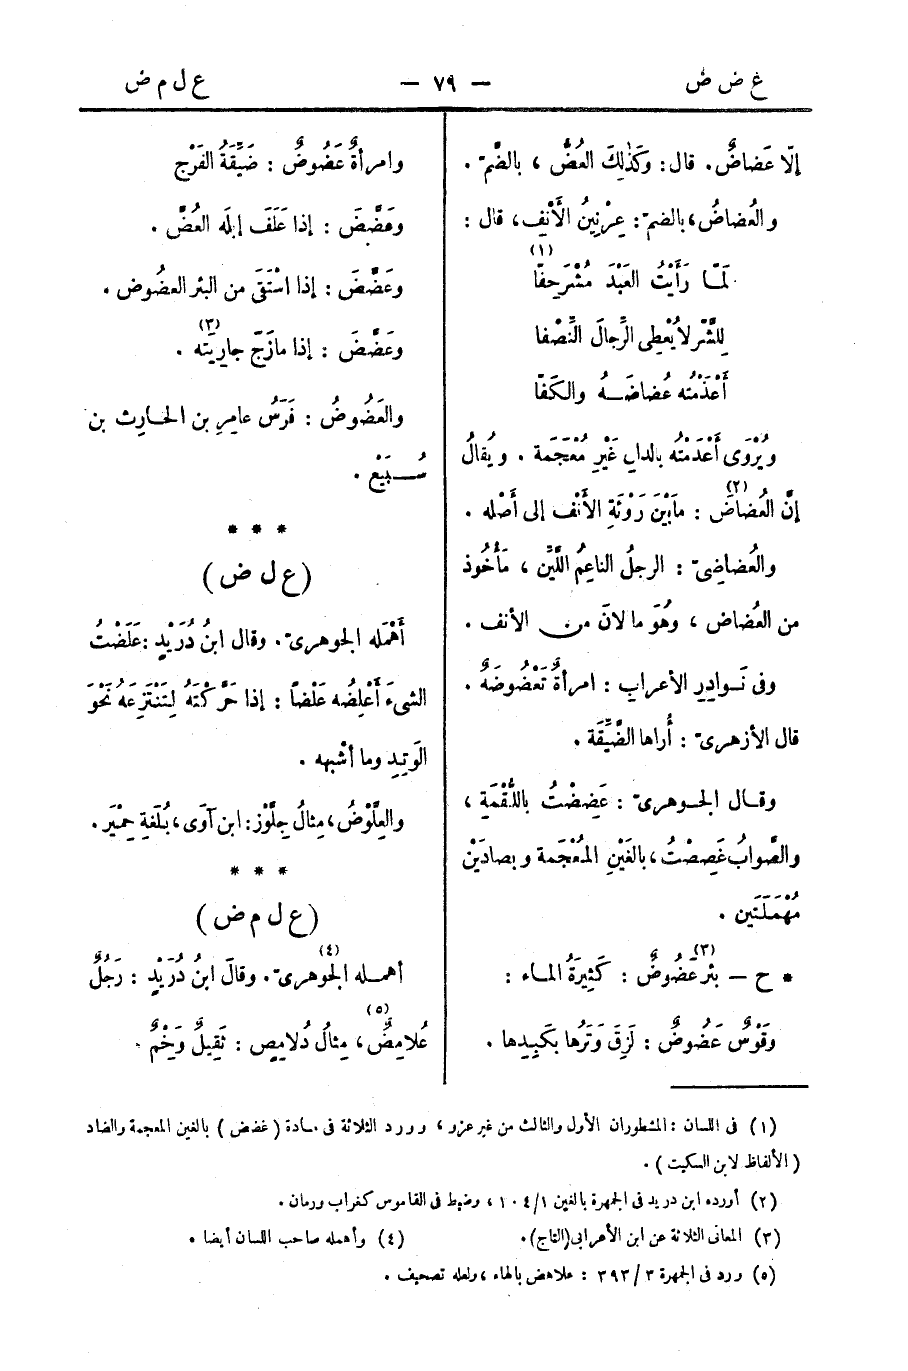 غ ض ض — ٧٩ — ع ل م ض
إلّا عَضاضٌ. قال: وكَذٰلِكَ العُضُّ ، بالضّمّ .
والعُضاضُ ،بالضمّ: عِرْنِينُ الأَنْفِ، قال :
(١)
لَمّـا رَأَيْتُ العَبْدَ مُشْرَحِفًّا
لِلشَّرِّ لا يُعْطِى الرِّجالَ النِّصْفا
أَعْذَمْتُه عُضاضَــهُ والكَفّا
ويُرْوَى أَعْدَمْتُه بالدال غَيْرِ مُعْجَمة . ويُقالُ
(٢)
إنَّ العُضاضَ : مابَيْنَ رَوْثَةِ الأَنْفِ إلى أَصْله .
والعُضاضِىّ : الرجلُ الناعِمُ اللَّيِّن ، مَأْخُوذ
من العُضاض ، وهُوَ ما لانَ من الأنف .
وفى نَـوادِرِ الأعرابِ : امرأةٌ تَعْضُوضَةٌ .
قال الأزهرىّ : أُراها الضَّيِّقَة .
وقـال الجـوهرىّ : عَضِضْتُ باللُّقْمَةِ ،
والصَّوابُ غَصِصْتُ ، بالغَيْنِ المُعْجَمة وبصادَيْن
مُهْمَلَتَين .
(٣)
* ح – بئر عَضُوضٌ : كَثِيرَةُ المـاء :
وقَوْسٌ عَضُوضٌ : لَزِقَ وَتَرُها بكَبِدِها .
وامرأةٌ عَضُوضٌ : ضَيِّقَةُ الفَرْج
وعَضَّضَ : إذا عَلَفَ إبلَه العُضَّ .
وعَضَّضَ : إذا اسْتَقَى من البئر العضُوض .
(٣)
وعَضَّضَ : إذا مازَحَ جاريتَه .
والعَضُوضُ : فَرَسُ عامِرِ بن الحـارِث بن
سُــبَيْع .
* * *
(ع ل ض)
أَهْمَله الجوهرىّ. وقال ابنُ دُرَيْدٍ :عَلَضْتُ
الشىءَ أَعْلِضُه عَلْضاً : إذا حَرَّكْتَهُ لِتَنْتَزِعَهُ نَحْوَ
الوَتِدِ وما أشْبهه .
والعِلَّوْضُ ، مِثالُ جِلَّوْز: ابن آوَى ، بلُغَةِ حِمْيَر .
* * *
(ع ل م ض)
(٤)
أهمـله الجوهرىّ. وقالَ ابنُ دُرَيْدٍ : رَجُلٌ
(٥)
عُلامِضٌ ، مِثالُ دُلامِصٍ : ثَقِيلٌ وَخْمٌ .
(١) فى اللسان : المشطوران الأول والثالث من غير عزو ، وورد الثلاثة فى مـادة (غضض) بالغين المعجمة والضاد
(الألفاظ لابن السكيت) .
(٢) أورده ابن دريد فى الجمهرة بالغين ١٠٤/١ ، وضبط فى القاموس كغراب ورمان .
(٣) المعانى الثلاثة عن ابن الأعرابى(التاج). (٤) وأهمله صاحب اللسان أيضا .
(٥) ورد فى الجمهرة ٣٩٣/٣ : علاهض بالهاء ، ولعله تصحيف .